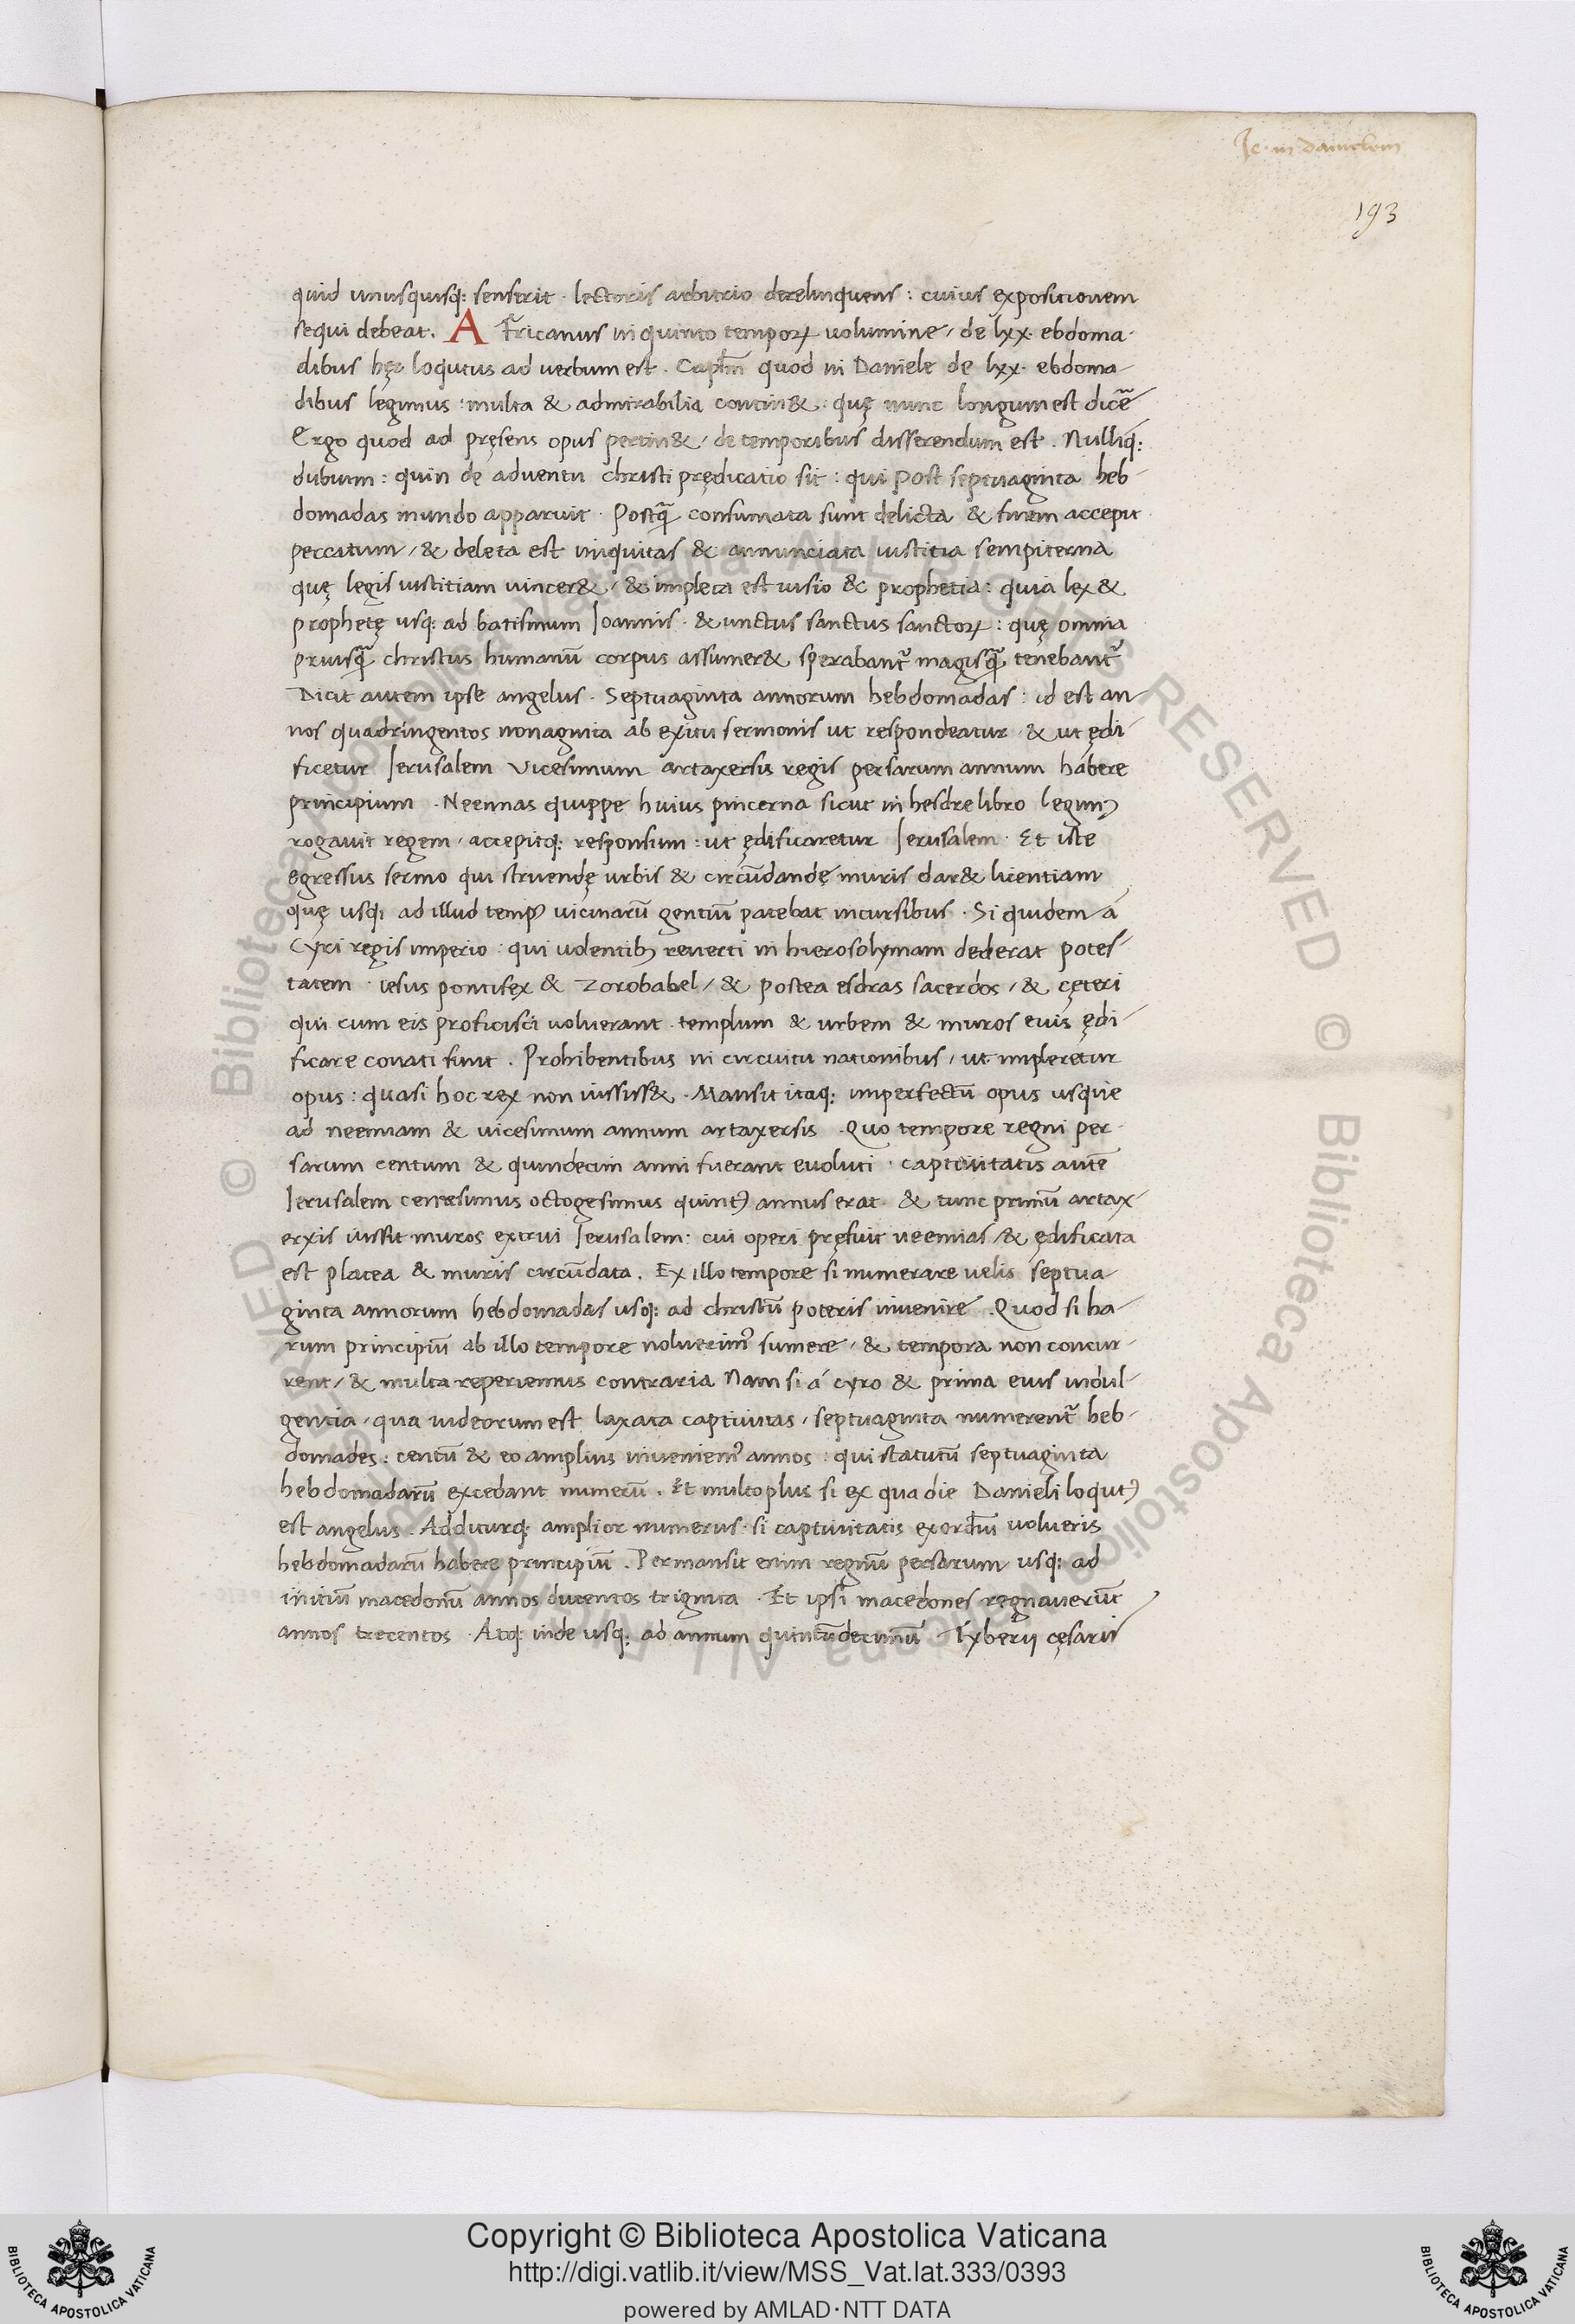 Je. in danielem
193
quid unusquisq; senserit · lectoris arbitrio derelinquens : cuius expositionem
sequi debeat. A Fricanus in quinto temporꝝ uolumine / de lxx· ebdoma-
dibus hęc loqutus ad verbum est · Capl̃m quod in Daniele de lxx· ebdoma-
dibus legimus : multa & admirabilia contin& · quę nunc longum est dicẽ
Ergo quod ad pręsens opus pertin& / de temporibus disserendum est . Nulliq;
dubium : quin de aduentu christi prędicatio sit : qui post septuaginta heb-
domadas mundo apparuit · Postq̃ consumata sunt delicta & finem accepit
peccatum / & deleta est iniquitas & annunciata iustitia sempiterna
quę legis iustitiam uincer& / & impleta est uisio & prophetia : quia lex &
prophetę usq; ad batismum Joannis · & unctus sanctus sanctoꝝ : quę omnia
priusq̃ christus humanũ corpus assumer& sperabant᷑ magisq̃ tenebant᷑
Dicit autem ipse angelus · Septuaginta annorum hebdomadas : id est an-
nos quadringentos nonaginta ab exitu sermonis ut respondeatur · & ut ędi-
ficetur Jerusalem vicesimum artaxersis regis persarum annum habere
principium · Neemias quippe huius pincerna sicut in hesdre libro legimꝰ
rogauit regem / accepitq; responsum : ut ędificaretur Jerusalem · Et iste
egressus sermo qui struendę urbis & circũdandę muris dar& licentiam
quę usq; ad illud tempꝰ uicinarũ gentiũ patebat incursibus · Si quidem á
Cyri regis imperio : qui uolentibꝫ reuerti in hierosolymam dederat potes-
tatem · iesus pontifex & Zorobabel / & postea esdras sacerdos / & cęteri
qui cum eis proficisci uoluerant · templum & urbem & muros euis ędi-
ficare conati sunt . Prohibentibus in circuitu nationibus / ut impleretur
opus : quasi hoc rex non iussiss& · Mansit itaq; imperfectũ opus usque
ad neemiam & uicesimum annum artaxersis · Quo tempore regni per-
sarum centum & quindecim anni fuerant euoluti · captiuitatis autẽ
Jerusalem centesimus octogesimus quintꝰ annus erat · & tunc primũ artax-
erxis iussit muros extrui Jerusalem : cui operi pręfuit neemias / & ędificata
est platea & muris circũdata . Ex illo tempore si numerare uelis septua-
ginta annorum hebdomadas usq; ad christũ poteris inuenire . Quod si ha-
rum principiũ ab illo tempore noluerimꝰ sumere / & tempora non concur-
rent / & multa reperiemus contraria Nam si á cyro & prima euis indul-
gentia / qua iudeorum est laxata captiuitas / septuaginta numerent᷑ heb-
domades : centũ & eo amplius inueniemꝰ annos : qui statutũ septuaginta
hebdomadarũ excedant numerũ . Et multo plus si ex qua die Danieli loqutꝰ
est angelus . Additurq; amplior numerus · si captiuitatis exordiũ uolueris
hebdomadarũ habere principiũ . Permansit enim regnũ persarum usq; ad
initiũ macedonũ annos ducentos triginta · Et ipsi macedones regnauerũt
annos trecentos · Atq; inde usq; ad annum quintũdecimũ Tyberij cęsaris
Copyright © Biblioteca Apostolica Vaticana
http://digi.vatlib.it/view/MSS_Vat.lat.333/0393
powered by AMLAD·NTT DATA